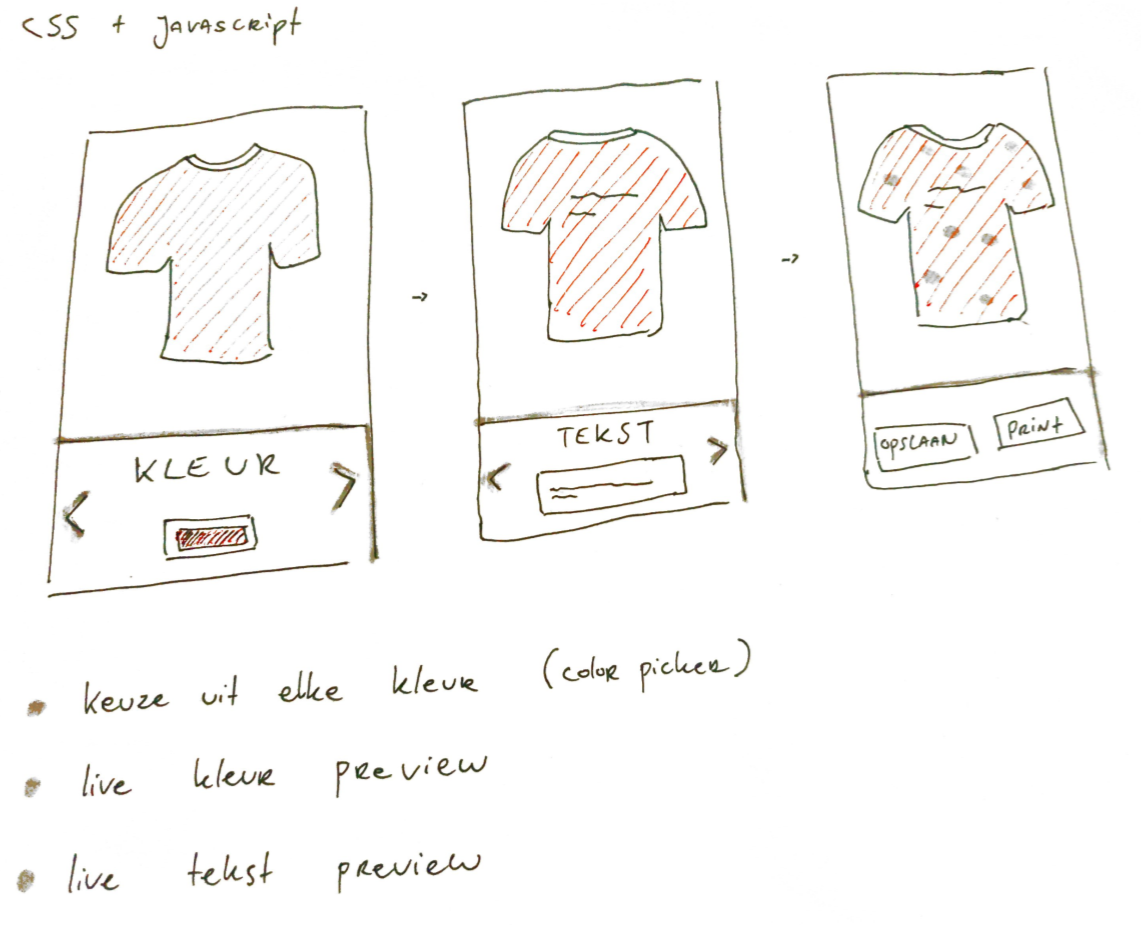 CSS + Javascript
KLEUR
TEKST
OPSLAAN
PRINT
keuze uit elke kleur (color picker)
live kleur preview
live tekst preview